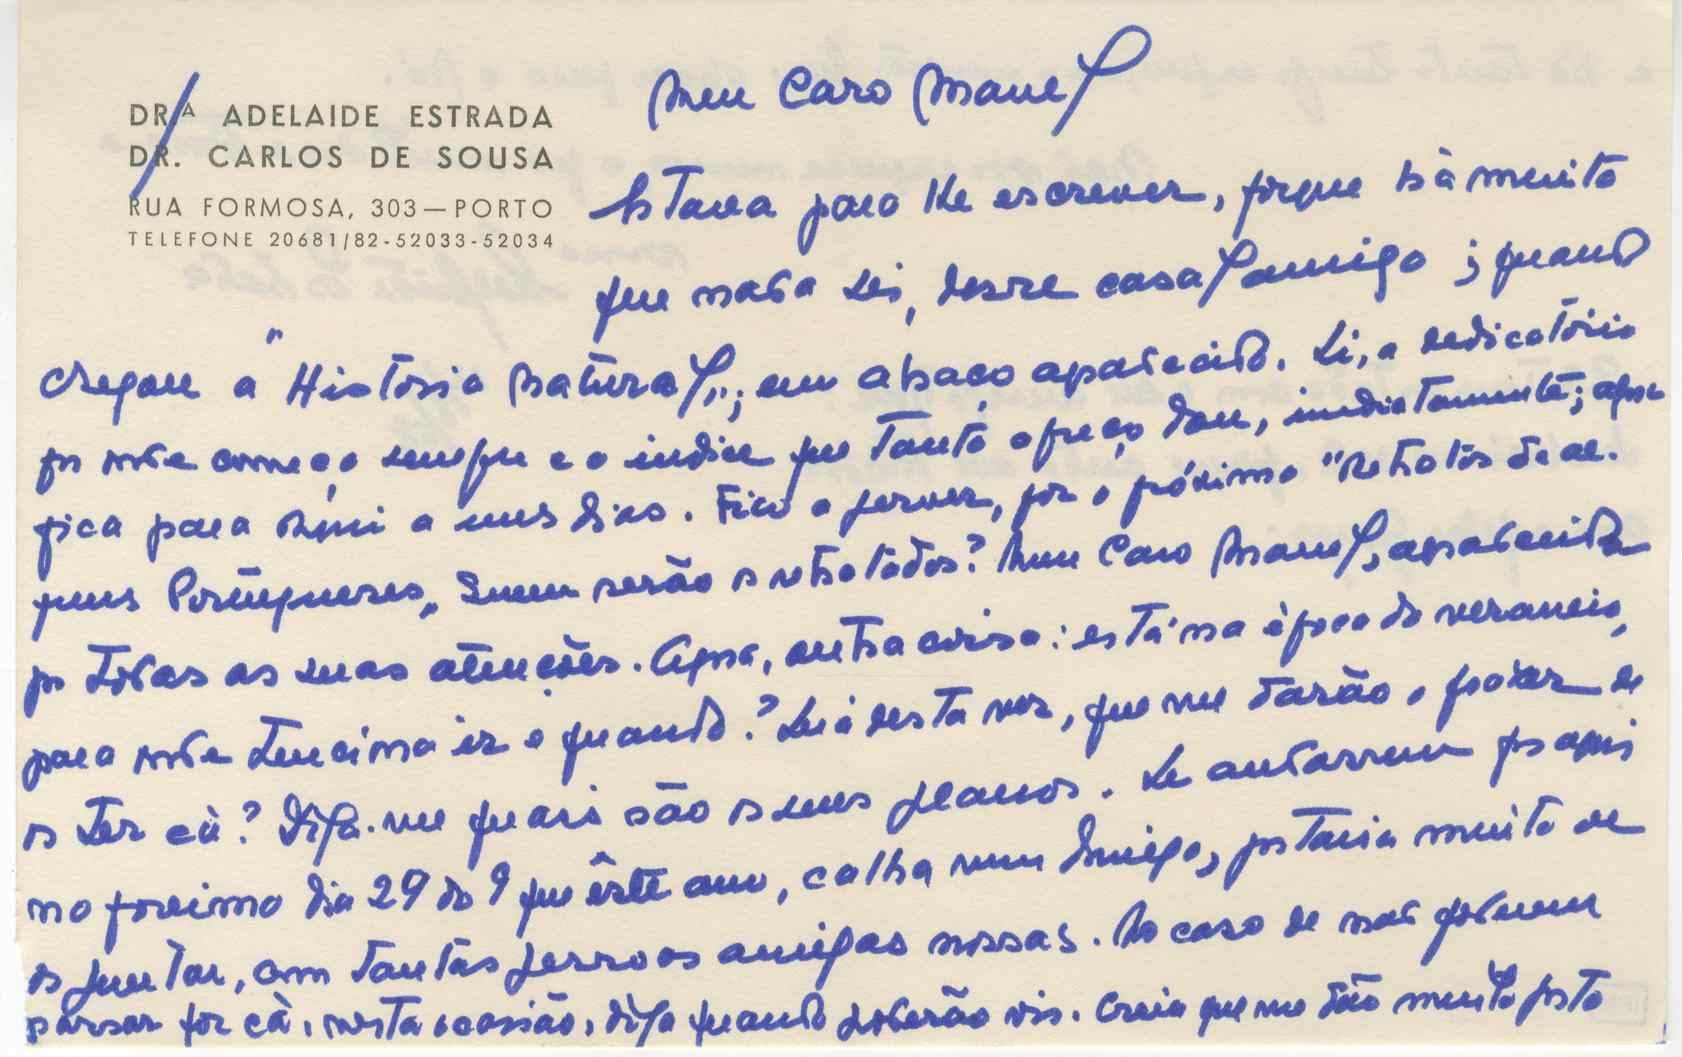 DR.ª ADELAIDE ESTRADA
DR. CARLOS DE SOUSA
RUA FORMOSA, 303 — PORTO
TELEFONE 20681/82-52033-52034
Meu Caro Manel
Estava para lhe escrever, porque há muito
que nada sei, desse casal amigo; quando
chegou a "História Natural"; um abraço agradecido. Li, a dedicatória
por onde começo sempre e o indice que tanto apreço dou, imediatamente; agora
fica para mim a uns dias. Fico a ferver, por o próximo "Retratos de al-
guns Portugueses" Quem serão os retratados? Meu Caro Manel, agradecida
por todas as suas atenções. Agora, outra coisa: está na época do veraneio,
para onde tenciona ir e quando? Será desta vez, que me darão o prazer de
os ter cá? Diga-me quais são os seus planos. Se andassem por aqui
no proximo dia 29 do 9 que êste ano, calha num Domingo, gostaria muito de
os juntar, com tantas pessoas amigas nossas. No caso de não poderem
passar por cá, nesta ocasião, diga quando poderão vir. Creia que me dão muito gosto